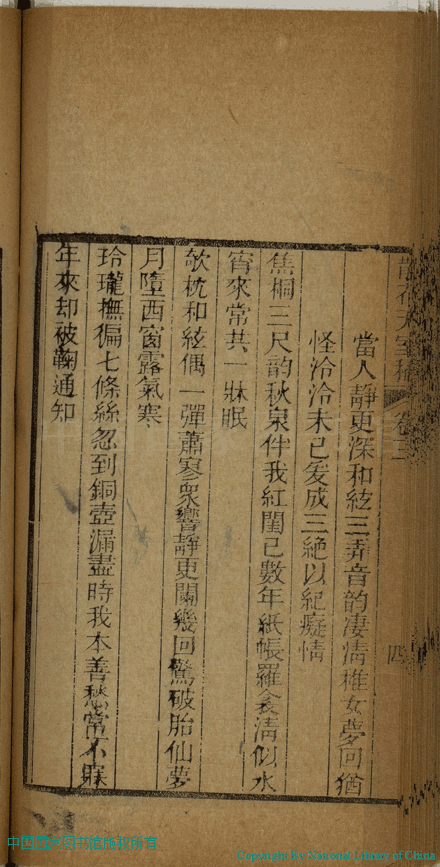 散花天室稿 卷三 四
當人靜更深和絃三弄音韵淒清稚女夢回猶
怪泠泠未已爰成三絕以紀癡情
焦桐三尺韵秋泉伴我紅閨已數年紙帳羅衾清似水
宵來常共一牀眠
欹枕和絃偶一彈蕭寥衆響靜更闌幾回驚破胎仙夢
月墮西窗露氣寒
玲瓏撫徧七條絲忽到銅壺漏盡時我本善愁常不寐
年來却被鞠通知
中国国家图书馆版权所有
Copyright By National Library of China